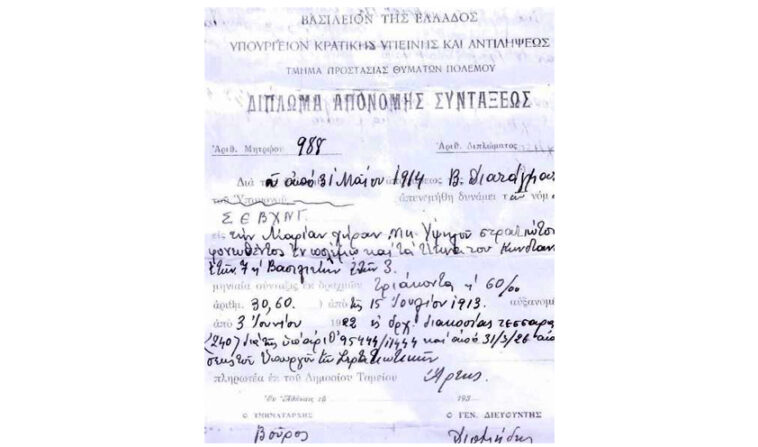 ΒΑΣΙΛΕΙΟΝ ΤΗΣ ΕΛΛΑΔΟΣ
ΥΠΟΥΡΓΕΙΟΝ ΚΡΑΤΙΚΗΣ ΥΓΙΕΙΝΗΣ ΚΑΙ ΑΝΤΙΛΗΨΕΩΣ
ΤΜΗΜΑ ΠΡΟΣΤΑΣΙΑΣ ΘΥΜΑΤΩΝ ΠΟΛΕΜΟΥ
ΔΙΠΛΩΜΑ ΑΠΟΝΟΜΗΣ ΣΥΝΤΑΞΕΩΣ
Ἀριθ. Μητρῴου 988 Ἀριθ. Διπλώματος
Διὰ ἀπό 31 Μαΐου 1914 Β. Διατάγμα
τοῦ Ὑπουργοῦ ἀπενεμήθη δυνάμει τ νόμ
ΣΕΒΧΝΓ.
εἰς τὴν Μαρίαν χήραν στρατιώτου
φονευθέντος ἐν πολέμῳ καὶ τὰ τέκνα του Κωνσταν
ἐτῶν 7 ἢ Βασιλικὴν ἐτῶν 3.
μηνιαία σύνταξις ἐκ δραχμῶν τριάκοντα ἢ 60/00
ἀριθμ. 30,60. ) ἀπὸ τῆς 15 Ἰουλίου 1913. αὐξανομ
ἀπὸ 3 Ἰουνίου 1922 εἰς δρχ. διακοσίας τεσσαρά
(240) διὰ τῆς ὑπ' ἀριθ 95444/ καὶ ἀπὸ 31/3/26
τοῦ Ὑπουργοῦ τῶν Στρατιωτικῶν
πληρωτέα ἐκ τοῦ Δημοσίου Ταμείου Ἄρτης.
Ἐν Ἀθήναις τῇ 193
Ο ΤΜΗΜΑΤΑΡΧΗΣ Ο ΓΕΝ. ΔΙΕΥΘΥΝΤΗΣ
Βούρος Διομήδης